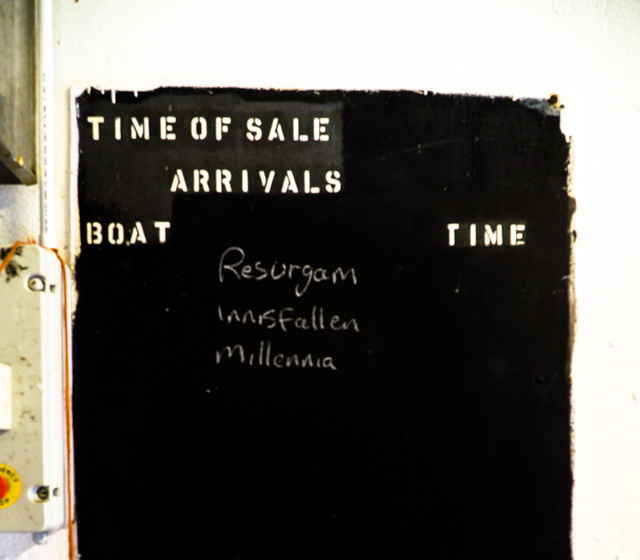 TIME OF SALE
ARRIVALS
BOAT TIME
Resurgam
Innisfallen
Millennia